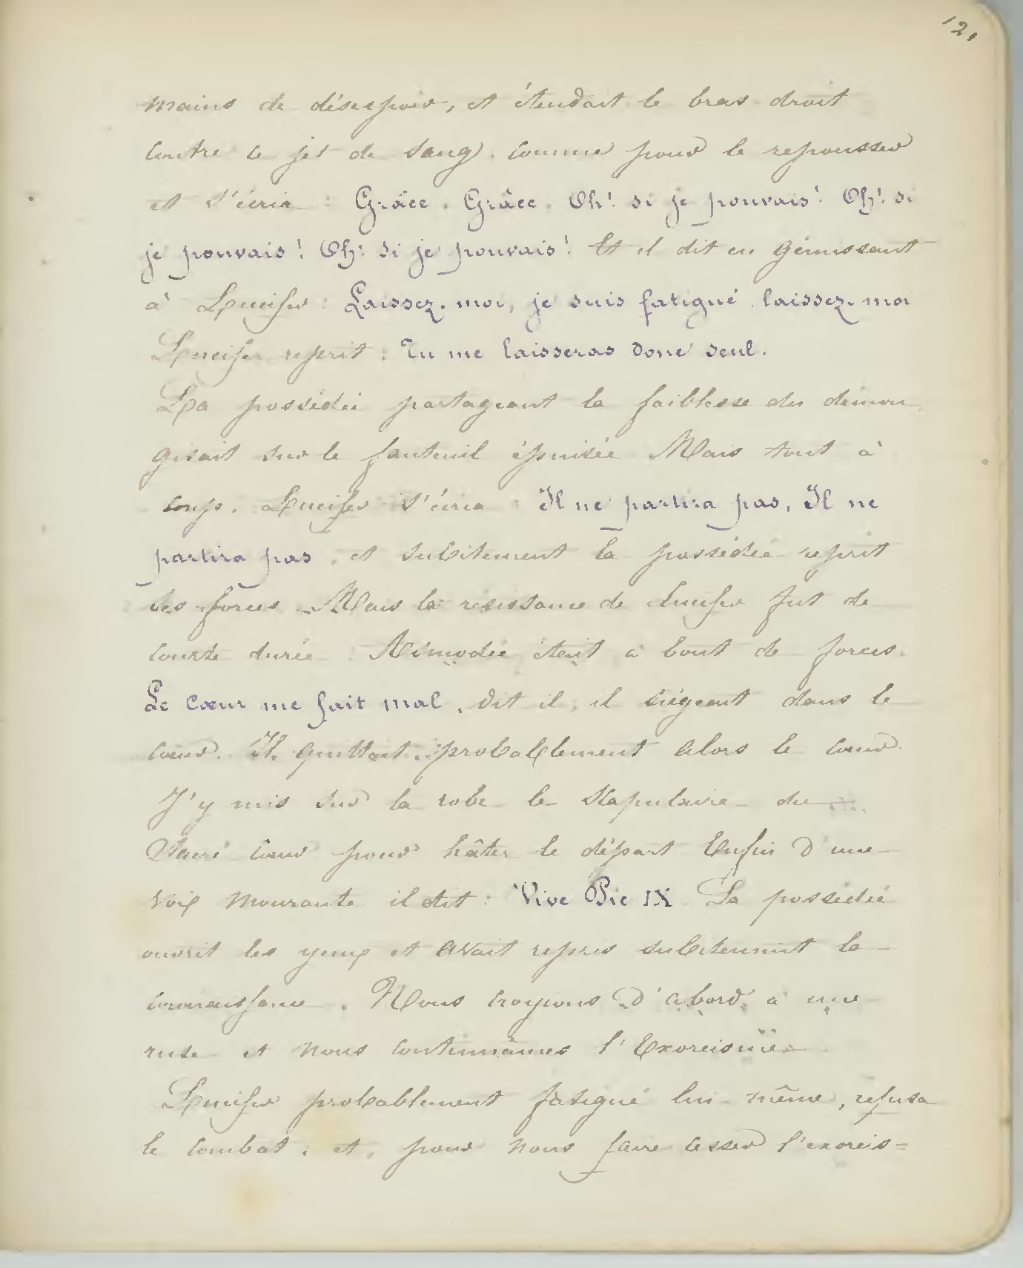 121
mains de désespoir, et étendait le bras droit
contre le jet de sang, comme pour le repousser
et s'écria : Grâce. Grâce. Oh! si je pouvais! Oh! si
je pouvais! Oh! si je pouvais! Et il dit en gémissant
à Lucifer : Laissez-moi, je suis fatigué, laissez-moi
Lucifer reprit : Tu me laisseras donc seul.
La possédée partageant la faiblesse du démon
gisait sur le fauteuil épuisée Mais tout à
coup, Lucifer s'écria : Il ne partira pas, Il ne
partira pas, et subitement la possédée reprit
ses forces. Mais la résistance de Lucifer fut de
courte durée. Asmodée était à bout de forces.
Le cœur me fait mal, dit il, il siégeant dans le
cœur. Il quittait probablement alors le cœur.
J'y mis sur la robe le Scapulaire du
Sacré Cœur pour hâter le départ Enfin d'une
voix mourante il dit : Vive Pie IX La possédée
ouvrit les yeux et avait repris subitement la
connaissance. Nous croyions d'abord à une
ruse et nous continuâmes l'Exorcisme
Lucifer probablement fatigué lui-même, refusa
le combat, et, pour nous faire cesser l'exorcis=